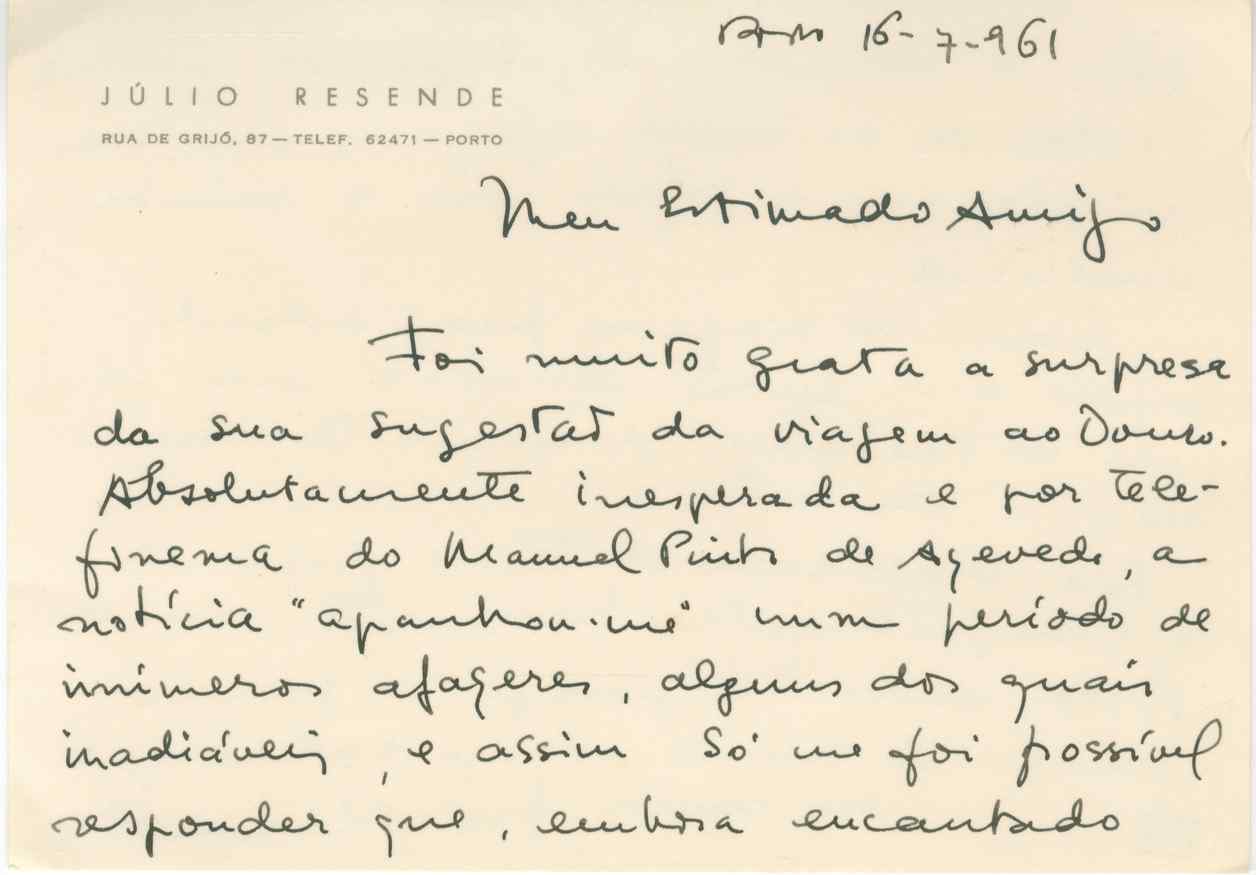 Porto 16-7-961
JÚLIO RESENDE
RUA DE GRIJÓ, 87 — TELEF. 62471 — PORTO
Meu Estimado Amigo
Foi muito grata a surpresa
da sua sugestão da viagem ao Douro.
Absolutamente inesperada e por tele-
finema do Manuel Pinto de Azevedo, a
notícia "apanhou-me" num período de
inúmeros afazeres, alguns dos quais
inadiáveis, e assim só me foi possível
responder que, embora encantado